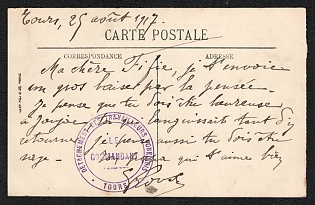 Tours, 25 août 1917.
CARTE POSTALE
CORRESPONDANCE
ADRESSE
Ma chère Fifie, je t'envoie
un gros baiser par la pensée.
Je pense que tu dois être heureuse
à
languissait tant d'y
retourner, je pense aussi tu dois être
sage.
qui t'aime bien
DÉTACHEMENT DES TRAVAILLEURS
LE
COMMANDANT
TOURS